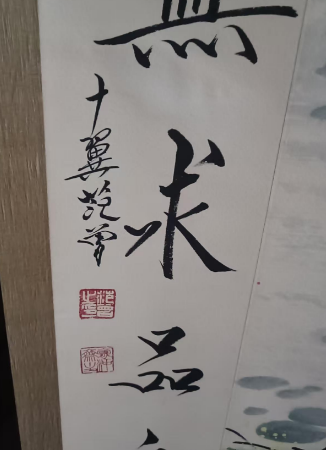 無求品
十翼范曾